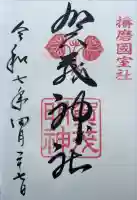 播磨國室社
加茂神社
賀茂神社
令和七年四月二十七日